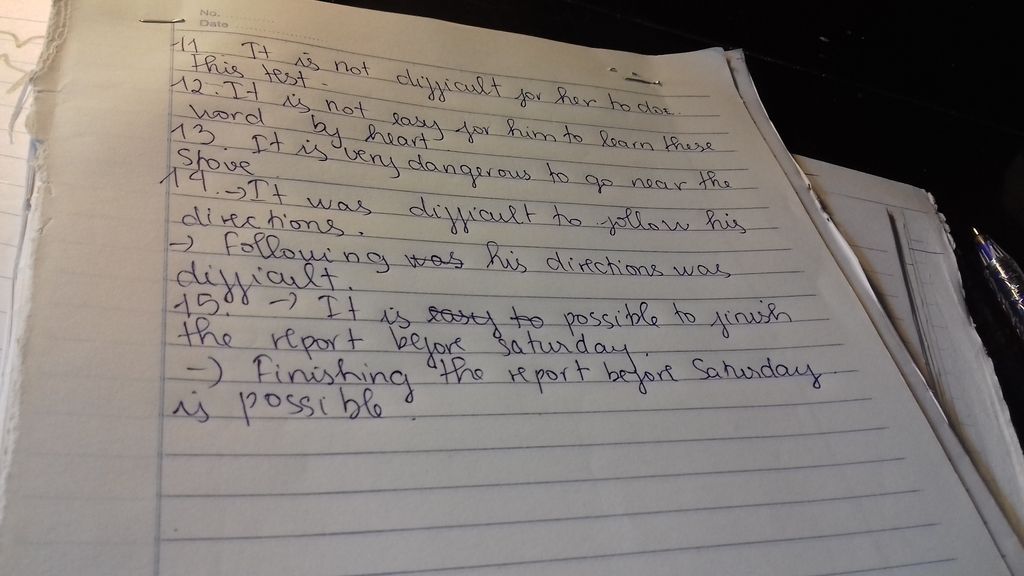 No.
Date
11. It is not difficult for her to do
this test.
12. It is not easy for him to learn these
word by heart.
13. It is very dangerous to go near the
stove
14. → It was difficult to follow his
directions.
→ Following was his directions was
difficult.
15. → It is easy to possible to finish
the report before Saturday.
→ Finishing the report before Saturday
is possible.